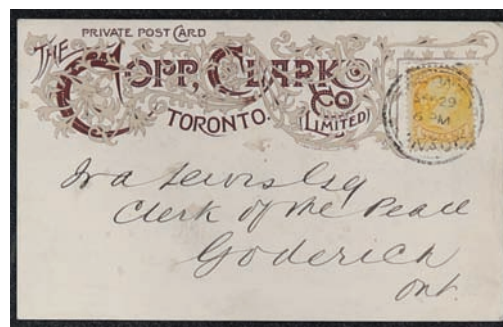 PRIVATE POST CARD
THE
COPP, CLARK
CO
(LIMITED)
TORONTO.
29
PM
Ira Lewis Esq
Clerk of the Peace
Goderich
Ont.